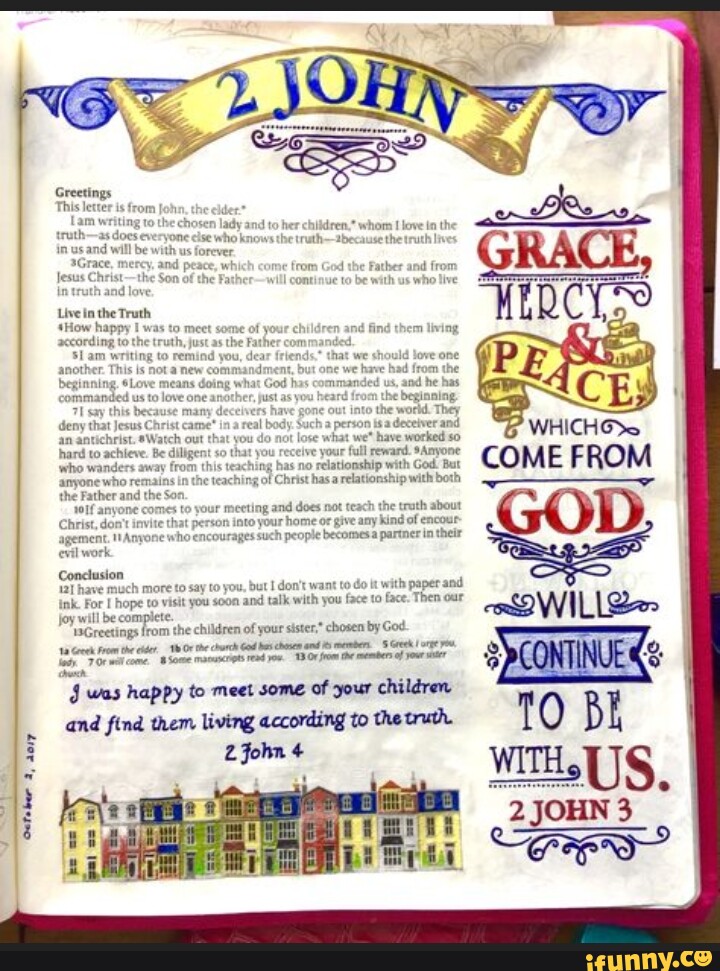 2 JOHN
Greetings
This letter is from John, the elder.*
I am writing to the chosen lady and to her children,* whom I love in the
truth—as does everyone else who knows the truth—2because the truth lives
in us and will be with us forever.
3Grace, mercy, and peace, which come from God the Father and from
Jesus Christ—the Son of the Father—will continue to be with us who live
in truth and love.
Live in the Truth
4How happy I was to meet some of your children and find them living
according to the truth, just as the Father commanded.
5I am writing to remind you, dear friends,* that we should love one
another. This is not a new commandment, but one we have had from the
beginning. 6Love means doing what God has commanded us, and he has
commanded us to love one another, just as you heard from the beginning.
7I say this because many deceivers have gone out into the world. They
deny that Jesus Christ came* in a real body. Such a person is a deceiver and
an antichrist. 8Watch out that you do not lose what we* have worked so
hard to achieve. Be diligent so that you receive your full reward. 9Anyone
who wanders away from this teaching has no relationship with God. But
anyone who remains in the teaching of Christ has a relationship with both
the Father and the Son.
10If anyone comes to your meeting and does not teach the truth about
Christ, don't invite that person into your home or give any kind of encour-
agement. 11Anyone who encourages such people becomes a partner in their
evil work.
Conclusion
12I have much more to say to you, but I don't want to do it with paper and
ink. For I hope to visit you soon and talk with you face to face. Then our
joy will be complete.
13Greetings from the children of your sister,* chosen by God.
1a Greek From the elder. 1b Or the church God has chosen and its members. 5 Greek I urge you,
lady. 7 Or will come. 8 Some manuscripts read you. 13 Or from the members of your sister
church.
I was happy to meet some of your children
and find them living according to the truth.
2 John 4
October 2, 2017
GRACE,
MERCY,
&
PEACE,
WHICH
COME FROM
GOD
WILL
CONTINUE
TO BE
WITH US.
2 JOHN 3
ifunny.co